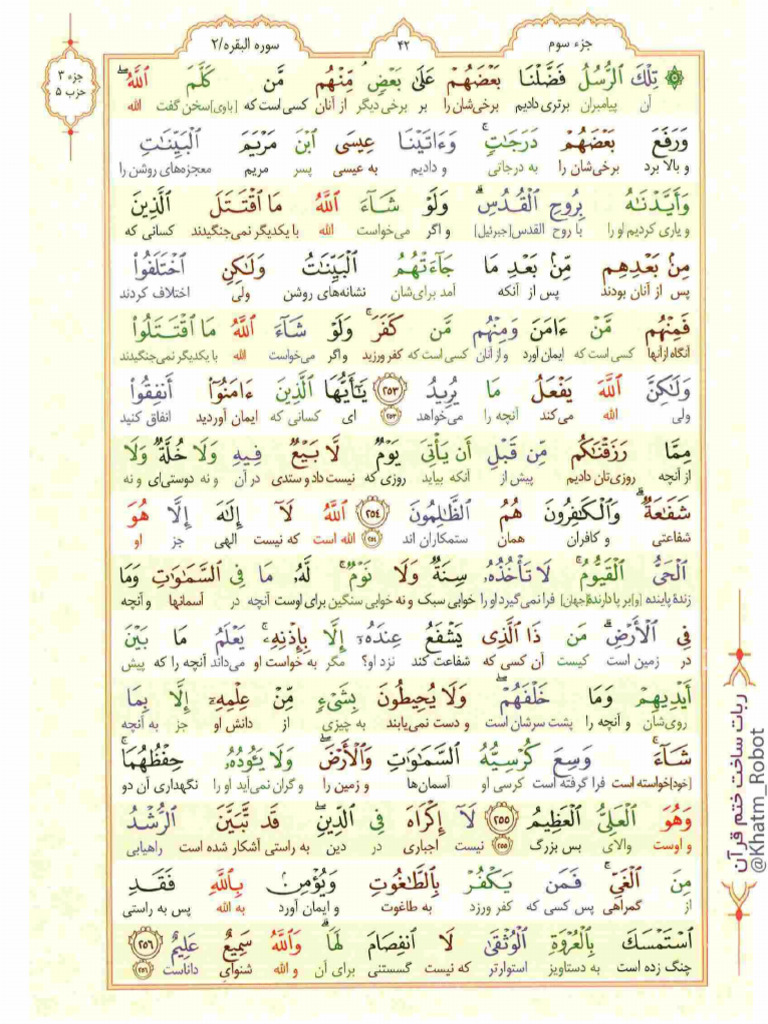 جزء سوم
۴۲
سوره البقره/۲
جزء ۳
حزب ۵
تِلْكَ الرُّسُلُ فَضَّلْنَا بَعْضَهُمْ عَلَىٰ بَعْضٍ مِنْهُم مَّن كَلَّمَ اللَّهُ
آن پیامبران برتری دادیم برخی‌شان را بر برخی دیگر از آنان کسی است که [باوی] سخن گفت الله
وَرَفَعَ بَعْضَهُمْ دَرَجَاتٍ وَءَاتَيْنَا عِيسَى ابْنَ مَرْيَمَ الْبَيِّنَاتِ
و بالا برد برخی‌شان را به درجاتی و دادیم به عیسی پسر مریم معجزه‌های روشن را
وَأَيَّدْنَاهُ بِرُوحِ الْقُدُسِ وَلَوْ شَاءَ اللَّهُ مَا اقْتَتَلَ الَّذِينَ
و یاری کردیم او را با روح القدس [جبرئیل] و اگر می‌خواست الله با یکدیگر نمی‌جنگیدند کسانی که
مِنْ بَعْدِهِم مِّنْ بَعْدِ مَا جَاءَتْهُمُ الْبَيِّنَاتُ وَلَٰكِنِ اخْتَلَفُوا
پس از آنان بودند پس از آنکه آمد برای‌شان نشانه‌های روشن ولی اختلاف کردند
فَمِنْهُم مَّنْ ءَامَنَ وَمِنْهُم مَّن كَفَرَ وَلَوْ شَاءَ اللَّهُ مَا اقْتَتَلُوا
آنگاه از آنها کسی است که ایمان آورد و از آنان کسی است که کفر ورزید و اگر می‌خواست الله با یکدیگر نمی‌جنگیدند
وَلَٰكِنَّ اللَّهَ يَفْعَلُ مَا يُرِيدُ ۲۵۳ يَا أَيُّهَا الَّذِينَ ءَامَنُوا أَنفِقُوا
ولی الله می‌کند آنچه را می‌خواهد ۲۵۳ ای کسانی که ایمان آوردید انفاق کنید
مِمَّا رَزَقْنَاكُم مِّن قَبْلِ أَن يَأْتِيَ يَوْمٌ لَّا بَيْعٌ فِيهِ وَلَا خُلَّةٌ وَلَا
از آنچه روزی‌تان دادیم پیش از آنکه بیاید روزی که نیست داد و ستدی در آن و نه دوستی‌ای و نه
شَفَاعَةٌ وَالْكَافِرُونَ هُمُ الظَّالِمُونَ ۲۵۴ اللَّهُ لَا إِلَٰهَ إِلَّا هُوَ
شفاعتی و کافران همان ستمکاران اند ۲۵۴ الله است که نیست الهی جز او
الْحَيُّ الْقَيُّومُ لَا تَأْخُذُهُ سِنَةٌ وَلَا نَوْمٌ لَّهُ مَا فِي السَّمَاوَاتِ وَمَا
زندهٔ پاینده [و] بر پا دارندهٔ [جهان] فرا نمی‌گیرد او را خوابی سبک و نه خوابی سنگین برای اوست آنچه در آسمانها و آنچه
فِي الْأَرْضِ مَن ذَا الَّذِي يَشْفَعُ عِندَهُ إِلَّا بِإِذْنِهِ يَعْلَمُ مَا بَيْنَ
در زمین است کیست آن کسی که شفاعت کند نزد او؟ مگر به خواست او می‌داند آنچه را که پیش
أَيْدِيهِمْ وَمَا خَلْفَهُمْ وَلَا يُحِيطُونَ بِشَيْءٍ مِّنْ عِلْمِهِ إِلَّا بِمَا
روی‌شان و آنچه را پشت سرشان است و دست نمی‌یابند به چیزی از دانش او جز به آنچه
شَاءَ وَسِعَ كُرْسِيُّهُ السَّمَاوَاتِ وَالْأَرْضَ وَلَا يَئُودُهُ حِفْظُهُمَا
[خود] خواسته است فرا گرفته است کرسی او آسمان‌ها و زمین را و گران نمی‌آید او را نگهداری آن دو
وَهُوَ الْعَلِيُّ الْعَظِيمُ ۲۵۵ لَا إِكْرَاهَ فِي الدِّينِ قَد تَّبَيَّنَ الرُّشْدُ
و اوست والای بس بزرگ ۲۵۵ نیست اجباری در دین به راستی آشکار شده است راهیابی
مِنَ الْغَيِّ فَمَن يَكْفُرْ بِالطَّاغُوتِ وَيُؤْمِنْ بِاللَّهِ فَقَدِ
از گمراهی پس کسی که کفر ورزد به طاغوت و ایمان آورد به الله پس به راستی
اسْتَمْسَكَ بِالْعُرْوَةِ الْوُثْقَىٰ لَا انفِصَامَ لَهَا وَاللَّهُ سَمِيعٌ عَلِيمٌ ۲۵۶
چنگ زده است به دستاویز استوارتر که نیست گسستنی برای آن و الله شنوای داناست ۲۵۶
ربات ساخت ختم قرآن
@Khatm_Robot